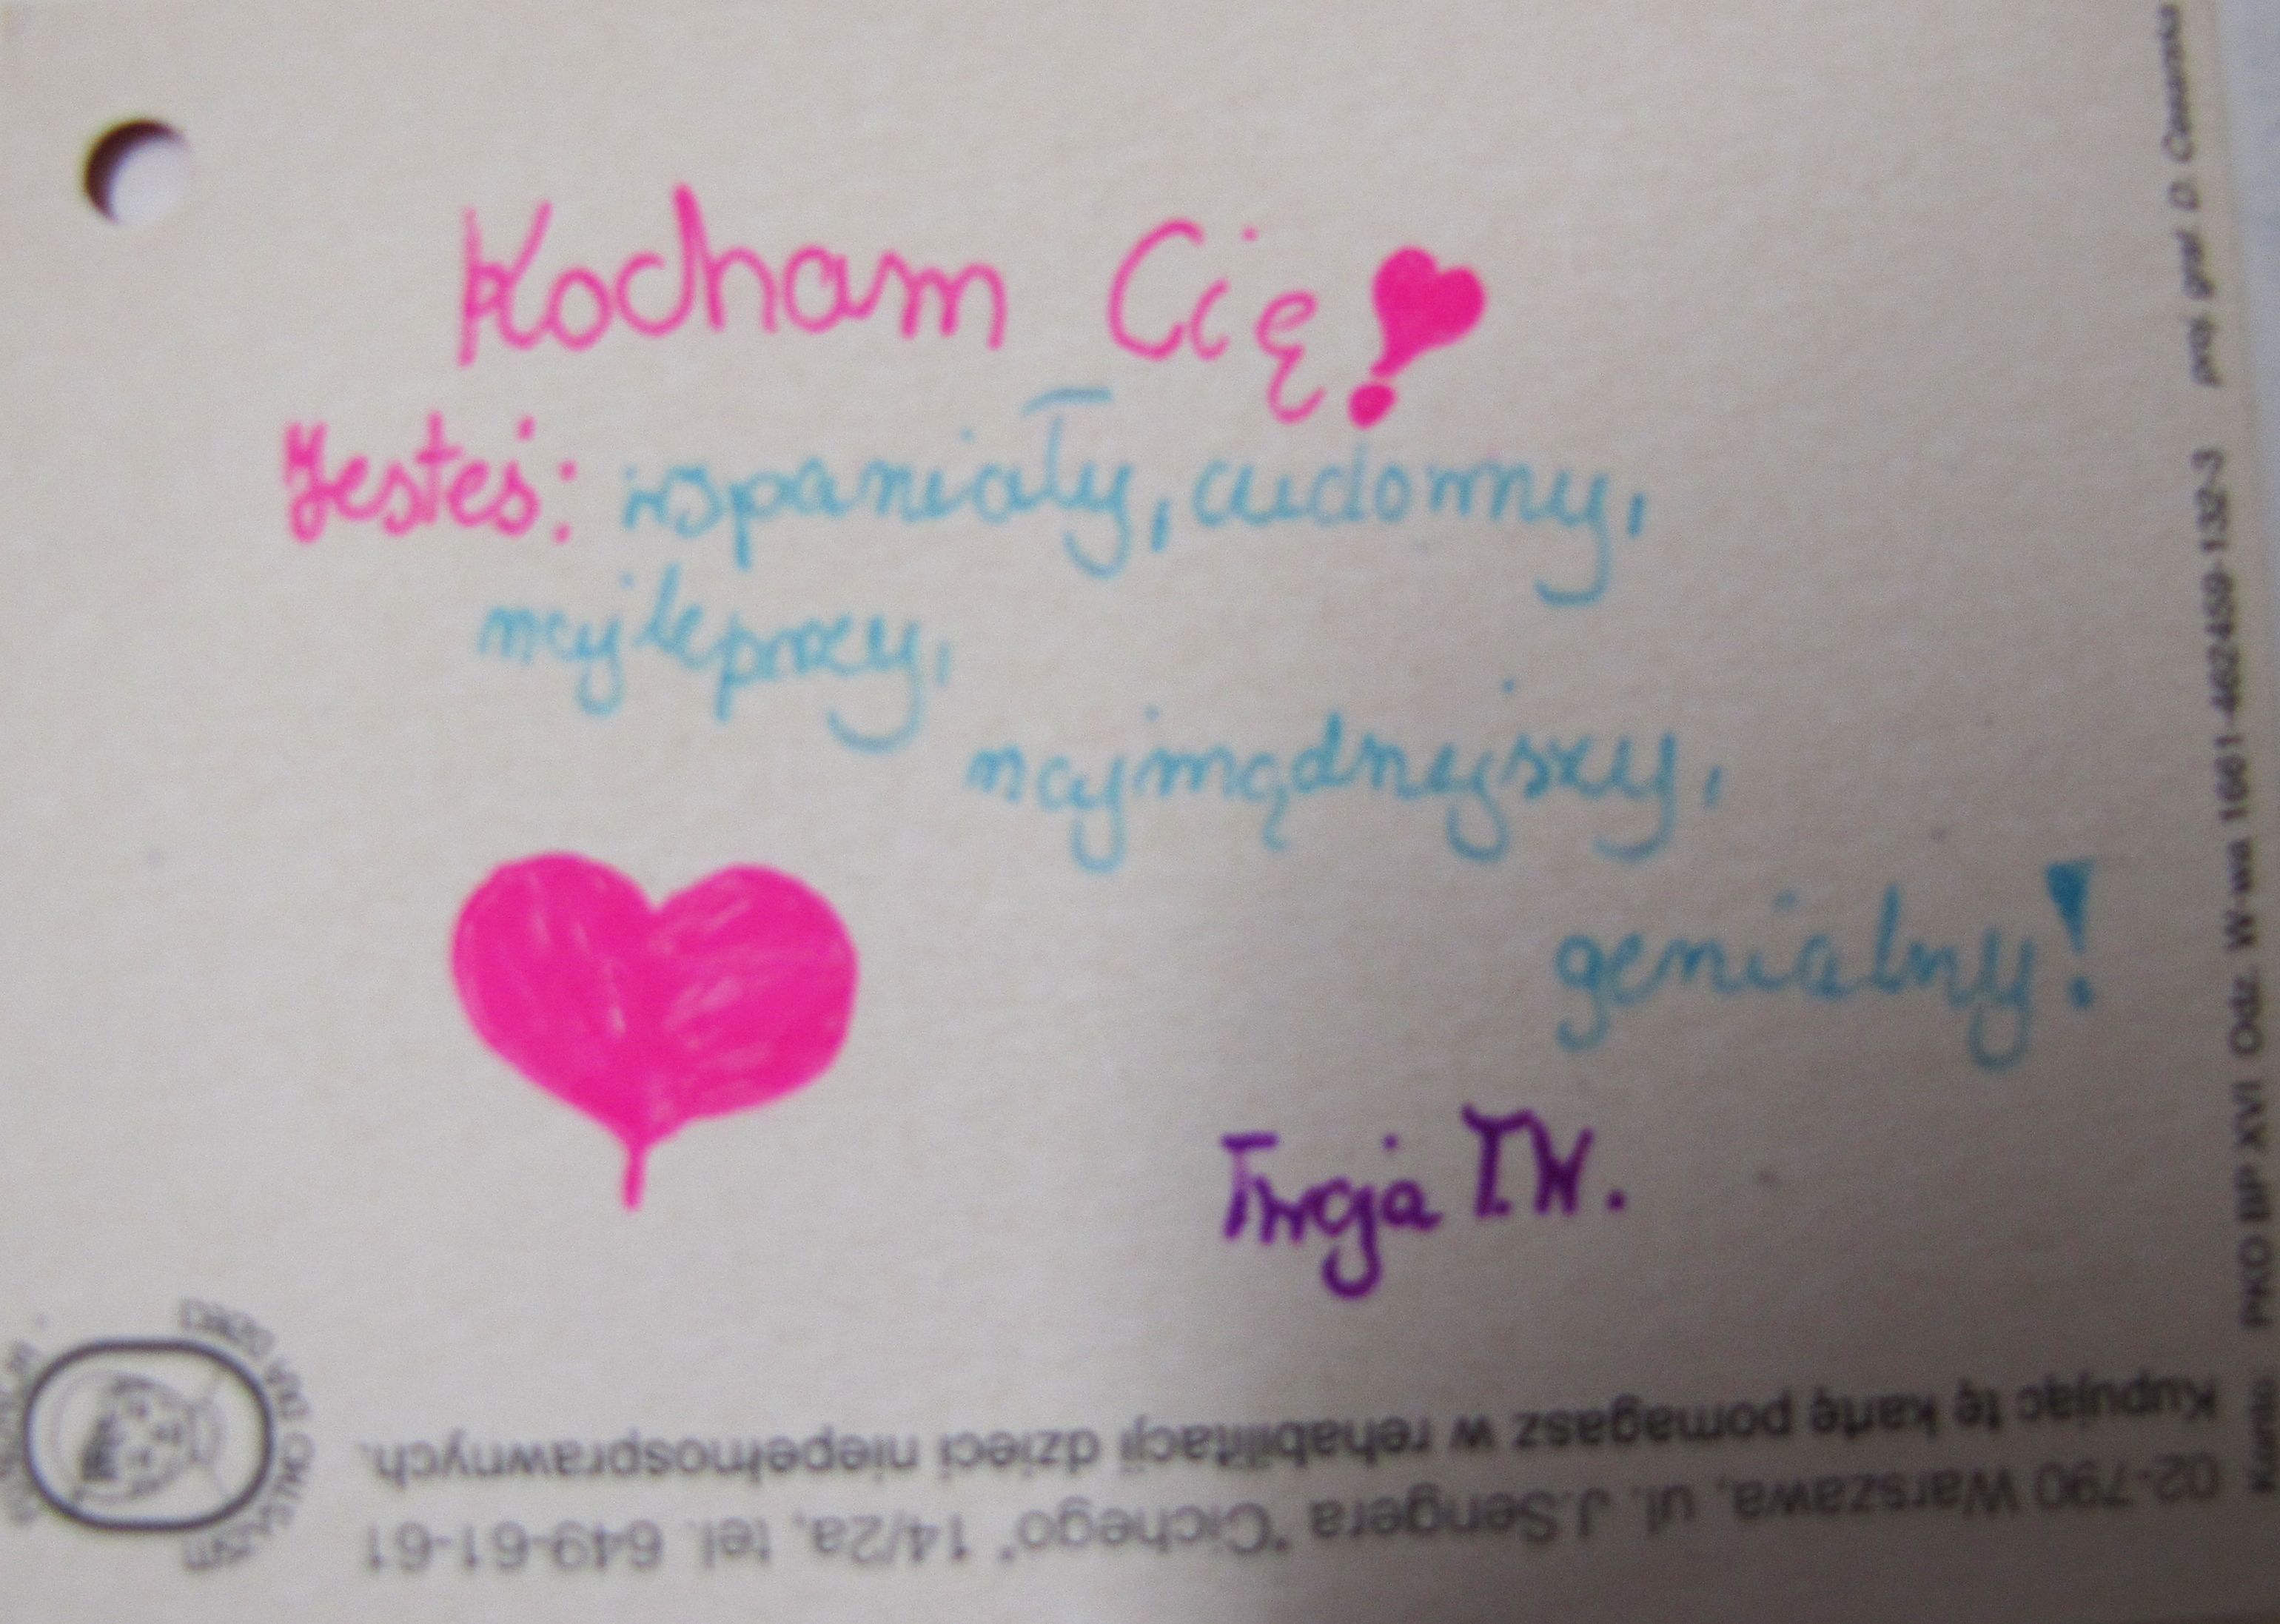 Kocham Cię!
Jesteś: wspaniały, cudowny,
najlepszy,
najmądrzejszy,
genialny!
Twoja T.W.
Kupując tę kartę pomagasz w rehabilitacji dzieci niepełnosprawnych.
02-790 Warszawa, ul. J.Sengera "Cichego" 14/2a, tel. 649-61-61
Konto: PKO BP XVI Odz. W-wa 1661-462459-132-3 proj. graf. D.